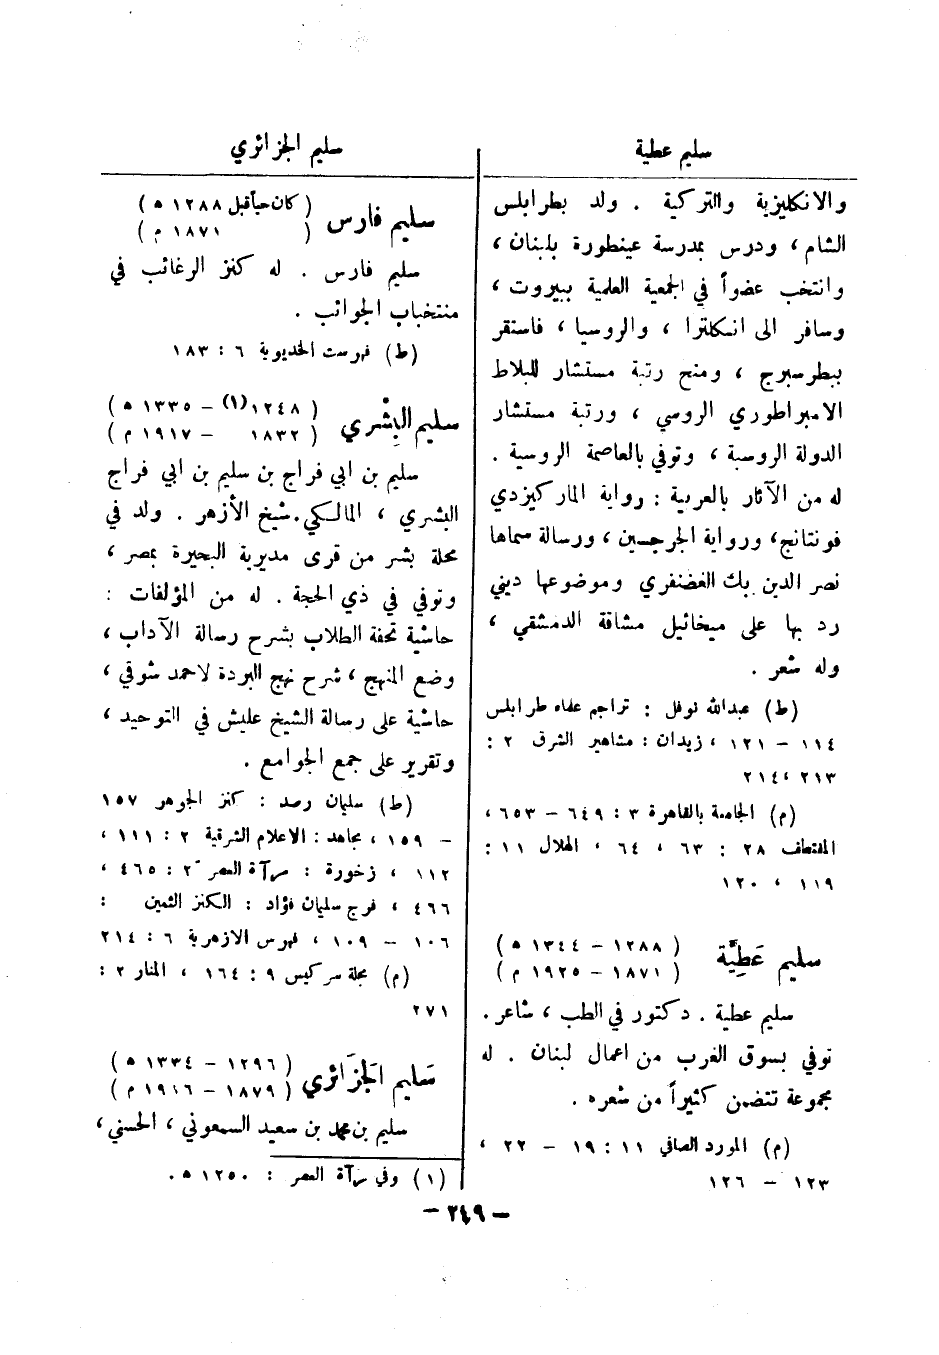 سليم عطية
والانكليزية والتركية . ولد بطرابلس
الشام ، ودرس بمدرسة عينطورة بلبنان ،
وانتخب عضواً في الجمعية العلمية ببيروت ،
وسافر الى انكلترا ، والروسيا ، فاستقر
ببطرسبرج ، ومنح رتبة مستشار للبلاط
الامبراطوري الروسي ، ورتبة مستشار
الدولة الروسية ، وتوفي بالعاصمة الروسية .
له من الآثار بالعربية : رواية الماركيزدي
فونتانج، ورواية الجرجسين ، ورسالة سماها
نصر الدين بك الغضنفري وموضوعها ديني
رد بها على ميخائيل مشاقة الدمشقي ،
وله شعر .
(ط) عبدالله نوفل : تراجم علماء طرابلس
١١٤ – ١٢١ ، زيدان : مشاهير الشرق ٢ :
٢١٣ ، ٢١٤
(م) الجامعة بالقاهرة ٣ : ٦٤٩ – ٦٥٣ ،
المقتطف ٢٨ : ٦٣ ، ٦٤ ، الهلال ١١ :
١١٩ ، ١٢٠
سليم عَطِيَّة ( ١٢٨٨ – ١٣٤٤ ه )
( ١٨٧١ – ١٩٢٥ م )
سليم عطية . دكتور في الطب ، شاعر .
توفي بسوق الغرب من اعمال لبنان . له
مجموعة تتضمن كثيراً من شعره .
(م) المورد الصافي ١١ : ١٩ – ٢٢ ،
١٢٣ – ١٢٦
سليم الجزائري
سليم فارس ( كان حياً قبل ١٢٨٨ ه )
( ١٨٧١ م )
سليم فارس . له كنز الرغائب في
منتخباب الجوائب .
(ط) فهرست الخديوية ٦ : ١٨٣
سليم البِشري ( ١٢٤٨(١) – ١٣٣٥ ه )
( ١٨٣٢ – ١٩١٧ م )
سليم بن ابي فراج بن سليم بن ابي فراج
البشري ، المالكي. شيخ الأزهر . ولد في
محلة بشر من قرى مديرية البحيرة بمصر ،
وتوفي في ذي الحجة . له من المؤلفات :
حاشية تحفة الطلاب بشرح رسالة الآداب ،
وضع المنهج ، شرح نهج البردة لاحمد شوقي ،
حاشية على رسالة الشيخ عليش في التوحيد ،
وتقرير على جمع الجوامع .
(ط) سليمان رصد : كنز الجوهر ١٥٧
– ١٥٩ ، مجاهد : الاعلام الشرقية ٢ : ١١١ ،
١١٢ ، زخورة : مرآة العصر ٢ : ٤٦٥ ،
٤٦٦ ، فرج سليمان فؤاد : الكنز الثمين :
١٠٦ – ١٠٩ ، فهرس الازهرية ٦ : ٢١٤
(م) مجلة سركيس ٩ : ١٦٤ ، المنار ٢ :
٢٧١
سَليم الجَزَائري ( ١٢٩٦ – ١٣٣٤ ه )
( ١٨٧٩ – ١٩١٦ م )
سليم بن محمد بن سعيد السمعوني ، الحسني ،
(١) وفي مرآة العصر : ١٢٥٠ ه .
– ٢٤٩ –